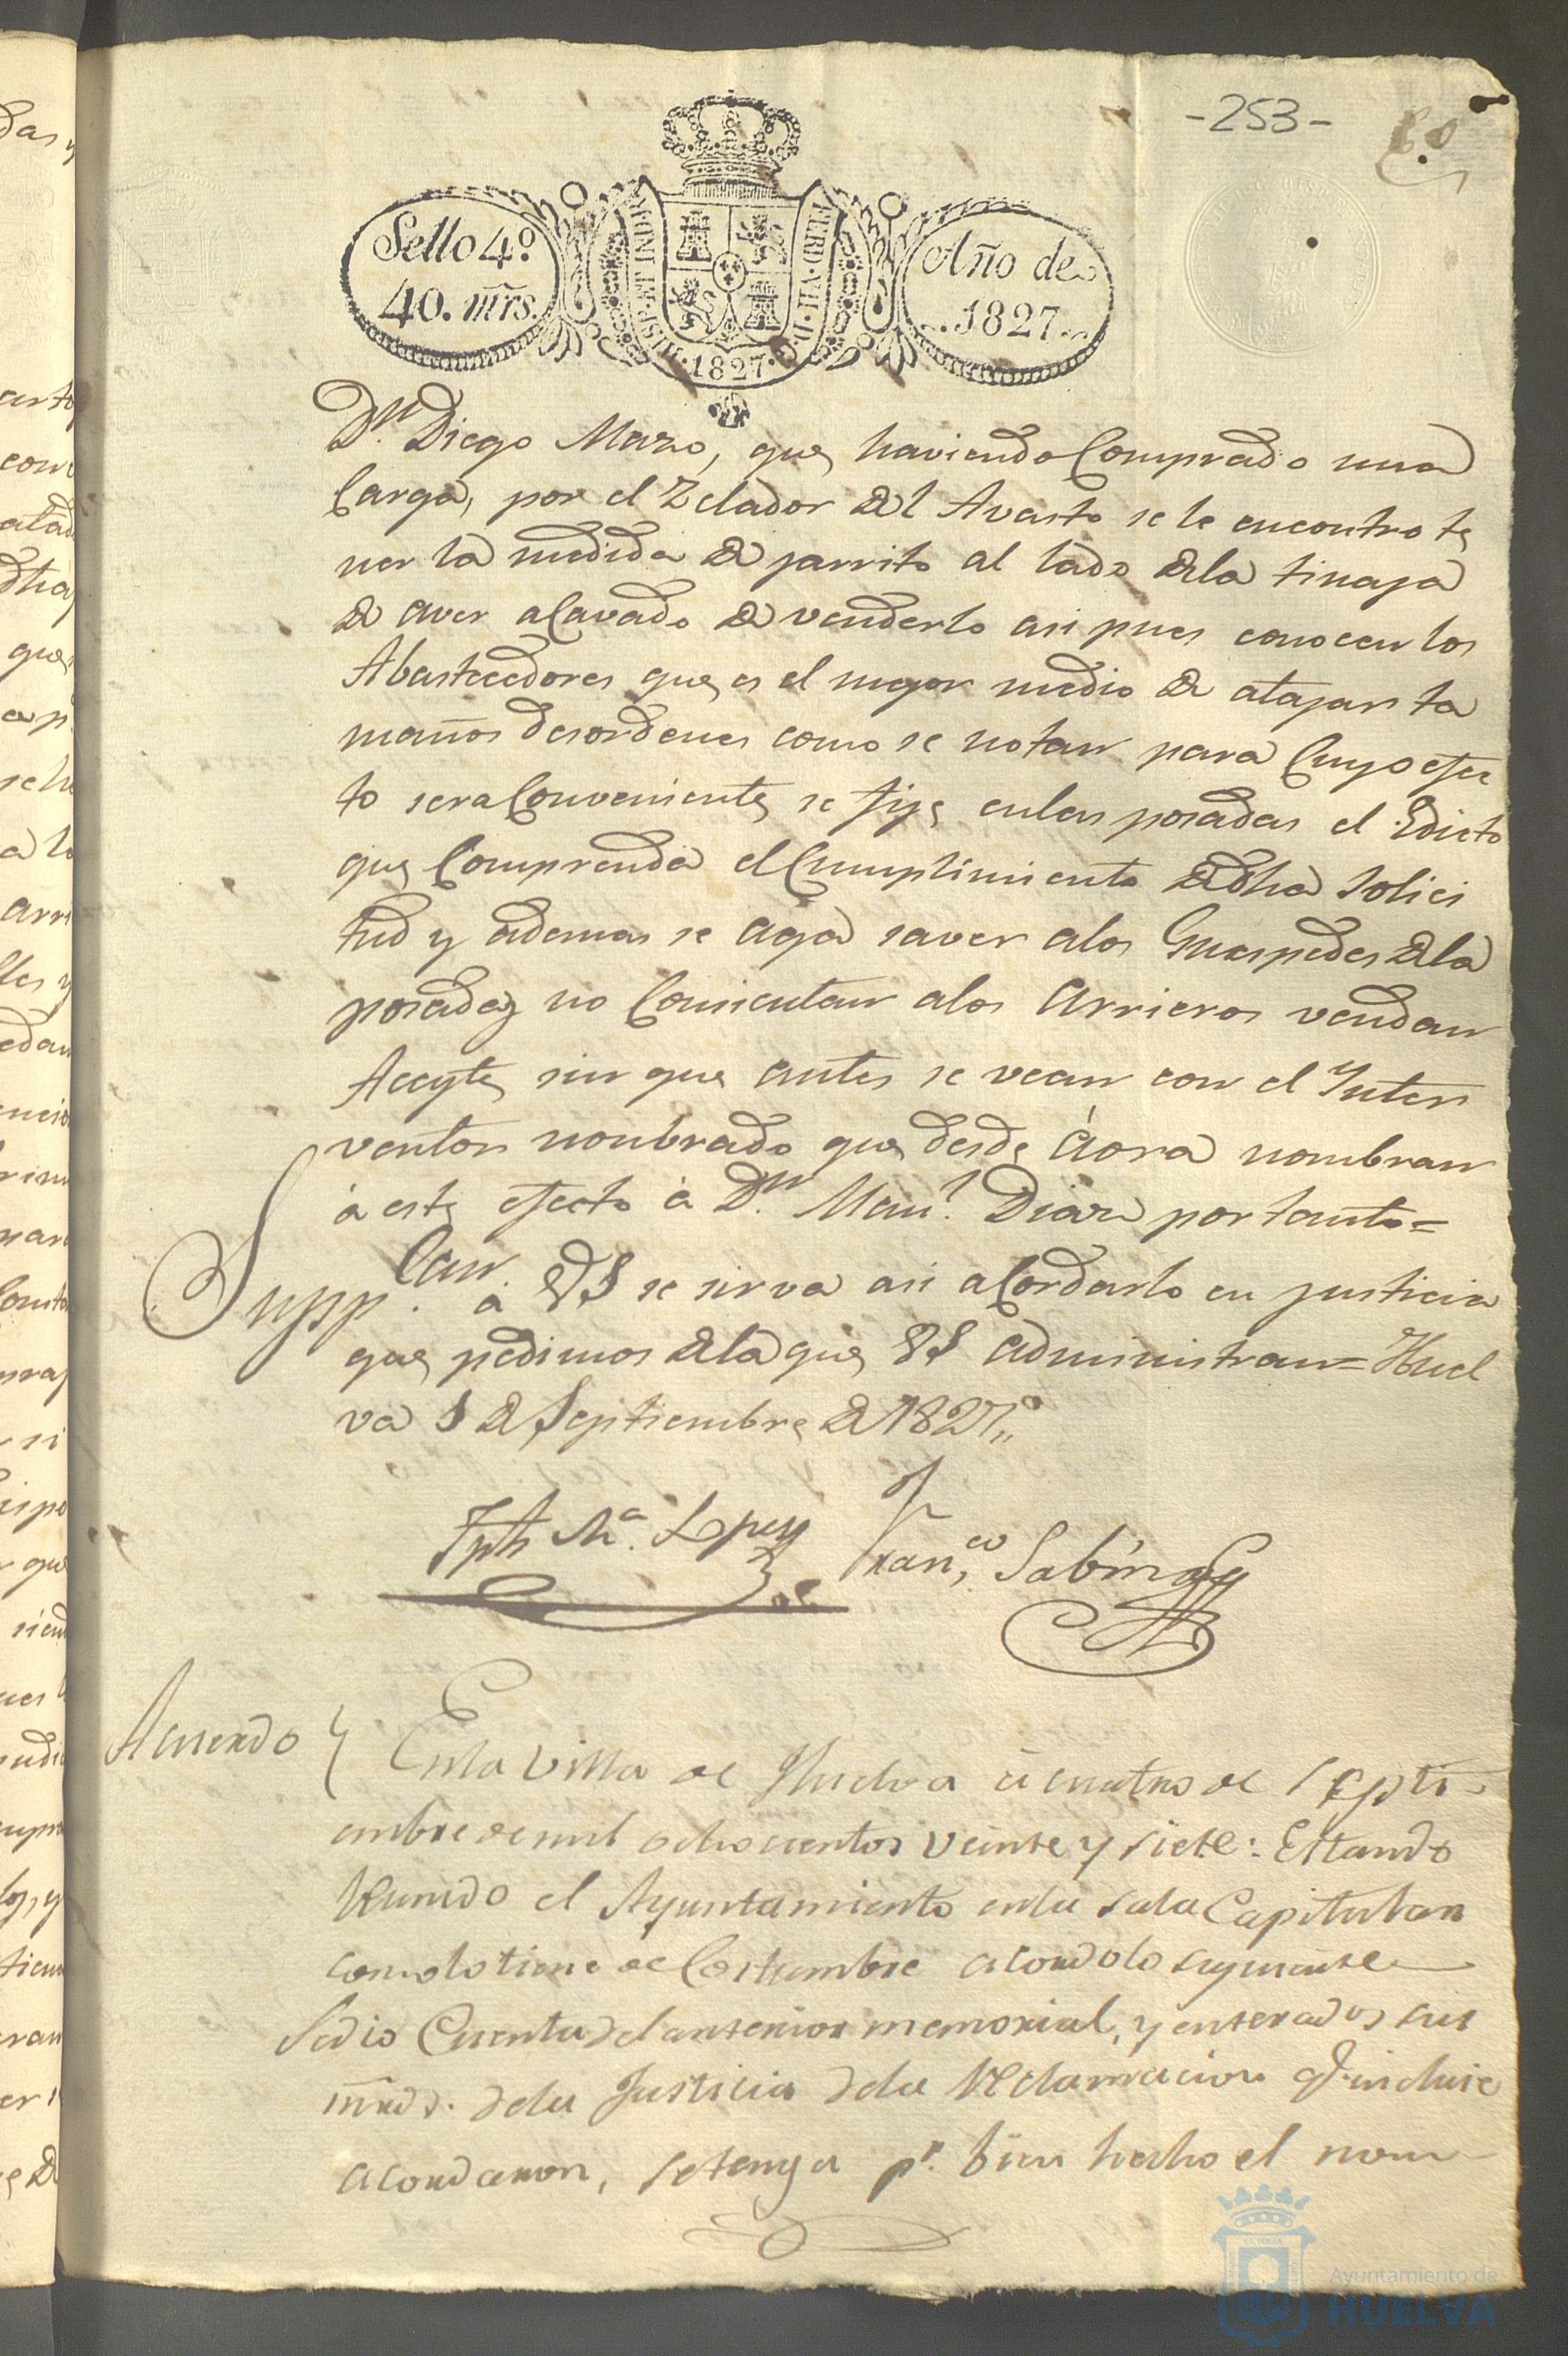 -253-
Sello 4.º
40. mrs.
HISP. ET IND. R.
FERD. VII. D. G.
1827
Año de
1827
Dn. Diego Mazo, que haviendo Comprado una
Carga, por el Zelador del Avasto se le encontro te
ner la medida de jarrito al lado dela tinaja
de aver aCavado de venderlo asi pues conocen los
Abastecedores que es el mejor medio de atajar ta
maños desordenes como se notan para Cuyo efec
to sera Conveniente se fije enlas posadas el Edicto
que Comprenda el Cumplimiento de dha solici
tud y ademas se aga saver alos Guespedes dela
posadas no Consientan alos Arrieros vendan
Aceyte sin que antes se vean con el Inter
ventor nombrado que desde áora nombran
á este efecto á Dn. Manl. Diaz por tanto=
Suppcan. á VS se sirva asi aCordarlo en justicia
que pedimos dela que VS administran= Huel
va 1 de Septiembre de 1827
Jph Ma. Lopez Franco. Sabino
Acuerdo
Enla Villa de Huelva á cuatro de Septi-
embre de mil ochocientos veinte y siete: Estando
Reunido el Ayuntamiento enla sala Capitular
como lo tiene de Costumbre acordo lo siguiente
Se dio Cuenta del anterior memorial, y enterados sus
mrds. dela Justicia dela Reclamacion q. incluie
acordaron, se tenga pr. bien hecho el nom-
Ayuntamiento de
HUELVA